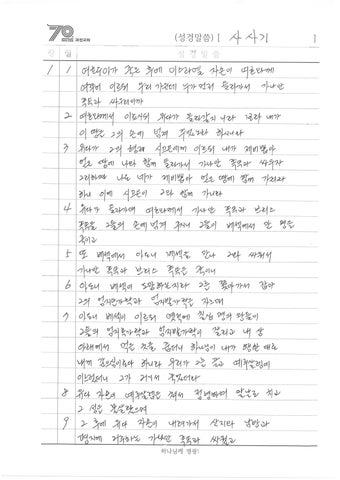 70 과천교회
(성경말씀) [ 사사기 ]
장 절 성경말씀
1 1 여호수아가 죽은 후에 이스라엘 자손이 여호와께
여쭈어 이르되 우리 가운데 누가 먼저 올라가서 가나안
족속과 싸우리이까
2 여호와께서 이르시되 유다가 올라갈지니라 보라 내가
이 땅을 그의 손에 넘겨 주었노라 하시니라
3 유다가 그의 형제 시므온에게 이르되 내가 제비뽑아
얻은 땅에 나와 함께 올라가서 가나안 족속과 싸우자
그리하면 나도 네가 제비뽑아 얻은 땅에 함께 가리라
하니 이에 시므온이 그와 함께 가니라
4 유다가 올라가매 여호와께서 가나안 족속과 브리스
족속을 그들의 손에 넘겨 주시니 그들이 베섹에서 만 명을
죽이고
5 또 베섹에서 아도니 베섹을 만나 그와 싸워서
가나안 족속과 브리스 족속을 죽이니
6 아도니 베섹이 도망하는지라 그를 쫓아가서 잡아
그의 엄지손가락과 엄지발가락을 자르매
7 아도니 베섹이 이르되 옛적에 칠십 명의 왕들이
그들의 엄지손가락과 엄지발가락이 잘리고 내 상
아래에서 먹을 것을 줍더니 하나님이 내가 행한 대로
내게 갚으심이로다 하니라 무리가 그를 끌고 예루살렘에
이르렀더니 그가 거기서 죽었더라
8 유다 자손이 예루살렘을 쳐서 점령하여 칼날로 치고
그 성을 불살랐으며
9 그 후에 유다 자손이 내려가서 산지와 남방과
평지에 거주하는 가나안 족속과 싸웠고
하나님께 영광!